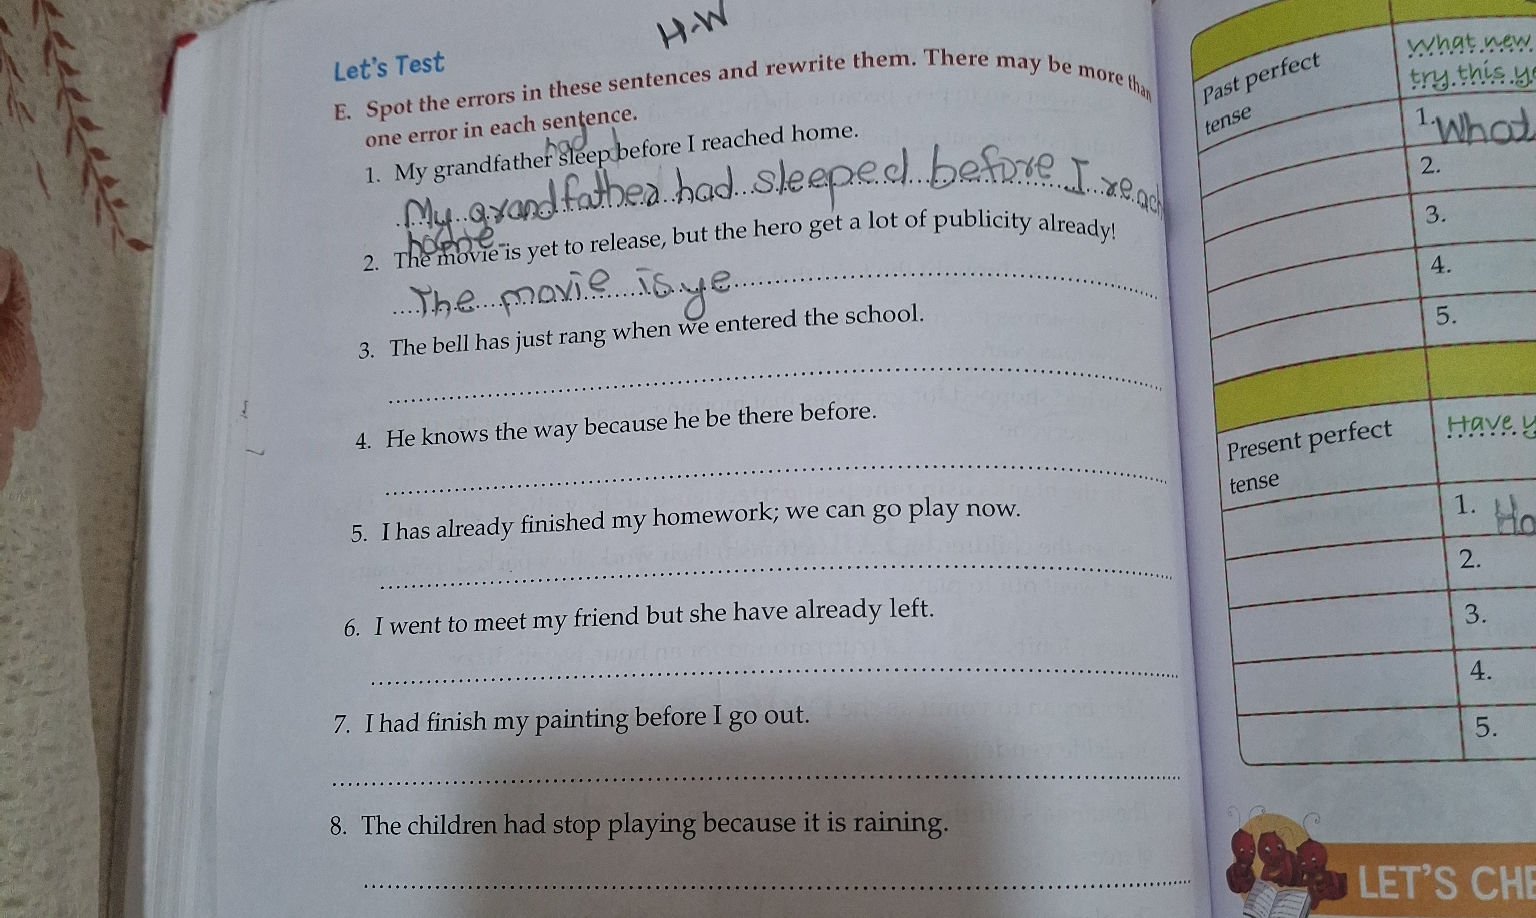 H.W
Let's Test
E. Spot the errors in these sentences and rewrite them. There may be more than
one error in each sentence.
had
1. My grandfather sleep before I reached home.
My grandfather had sleeped before I reach
home
2. The movie is yet to release, but the hero get a lot of publicity already!
The movie is ye
3. The bell has just rang when we entered the school.
4. He knows the way because he be there before.
5. I has already finished my homework; we can go play now.
6. I went to meet my friend but she have already left.
7. I had finish my painting before I go out.
8. The children had stop playing because it is raining.
Past perfect
tense
What new
try this y
1. What
2.
3.
4.
5.
Present perfect
tense
Have y
1. Ha
2.
3.
4.
5.
LET'S CHE